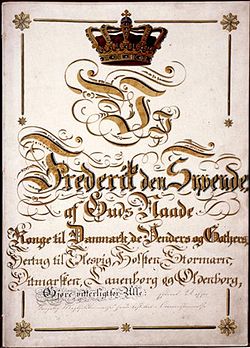 Vi
Frederik den Syvende
af Guds Naade
Konge til Danmark, de Venders og Gothers,
Hertug til Slesvig, Holsten, Stormarn,
Ditmarsken, Lauenborg og Oldenborg,
Gjøre vitterligt for Alle: